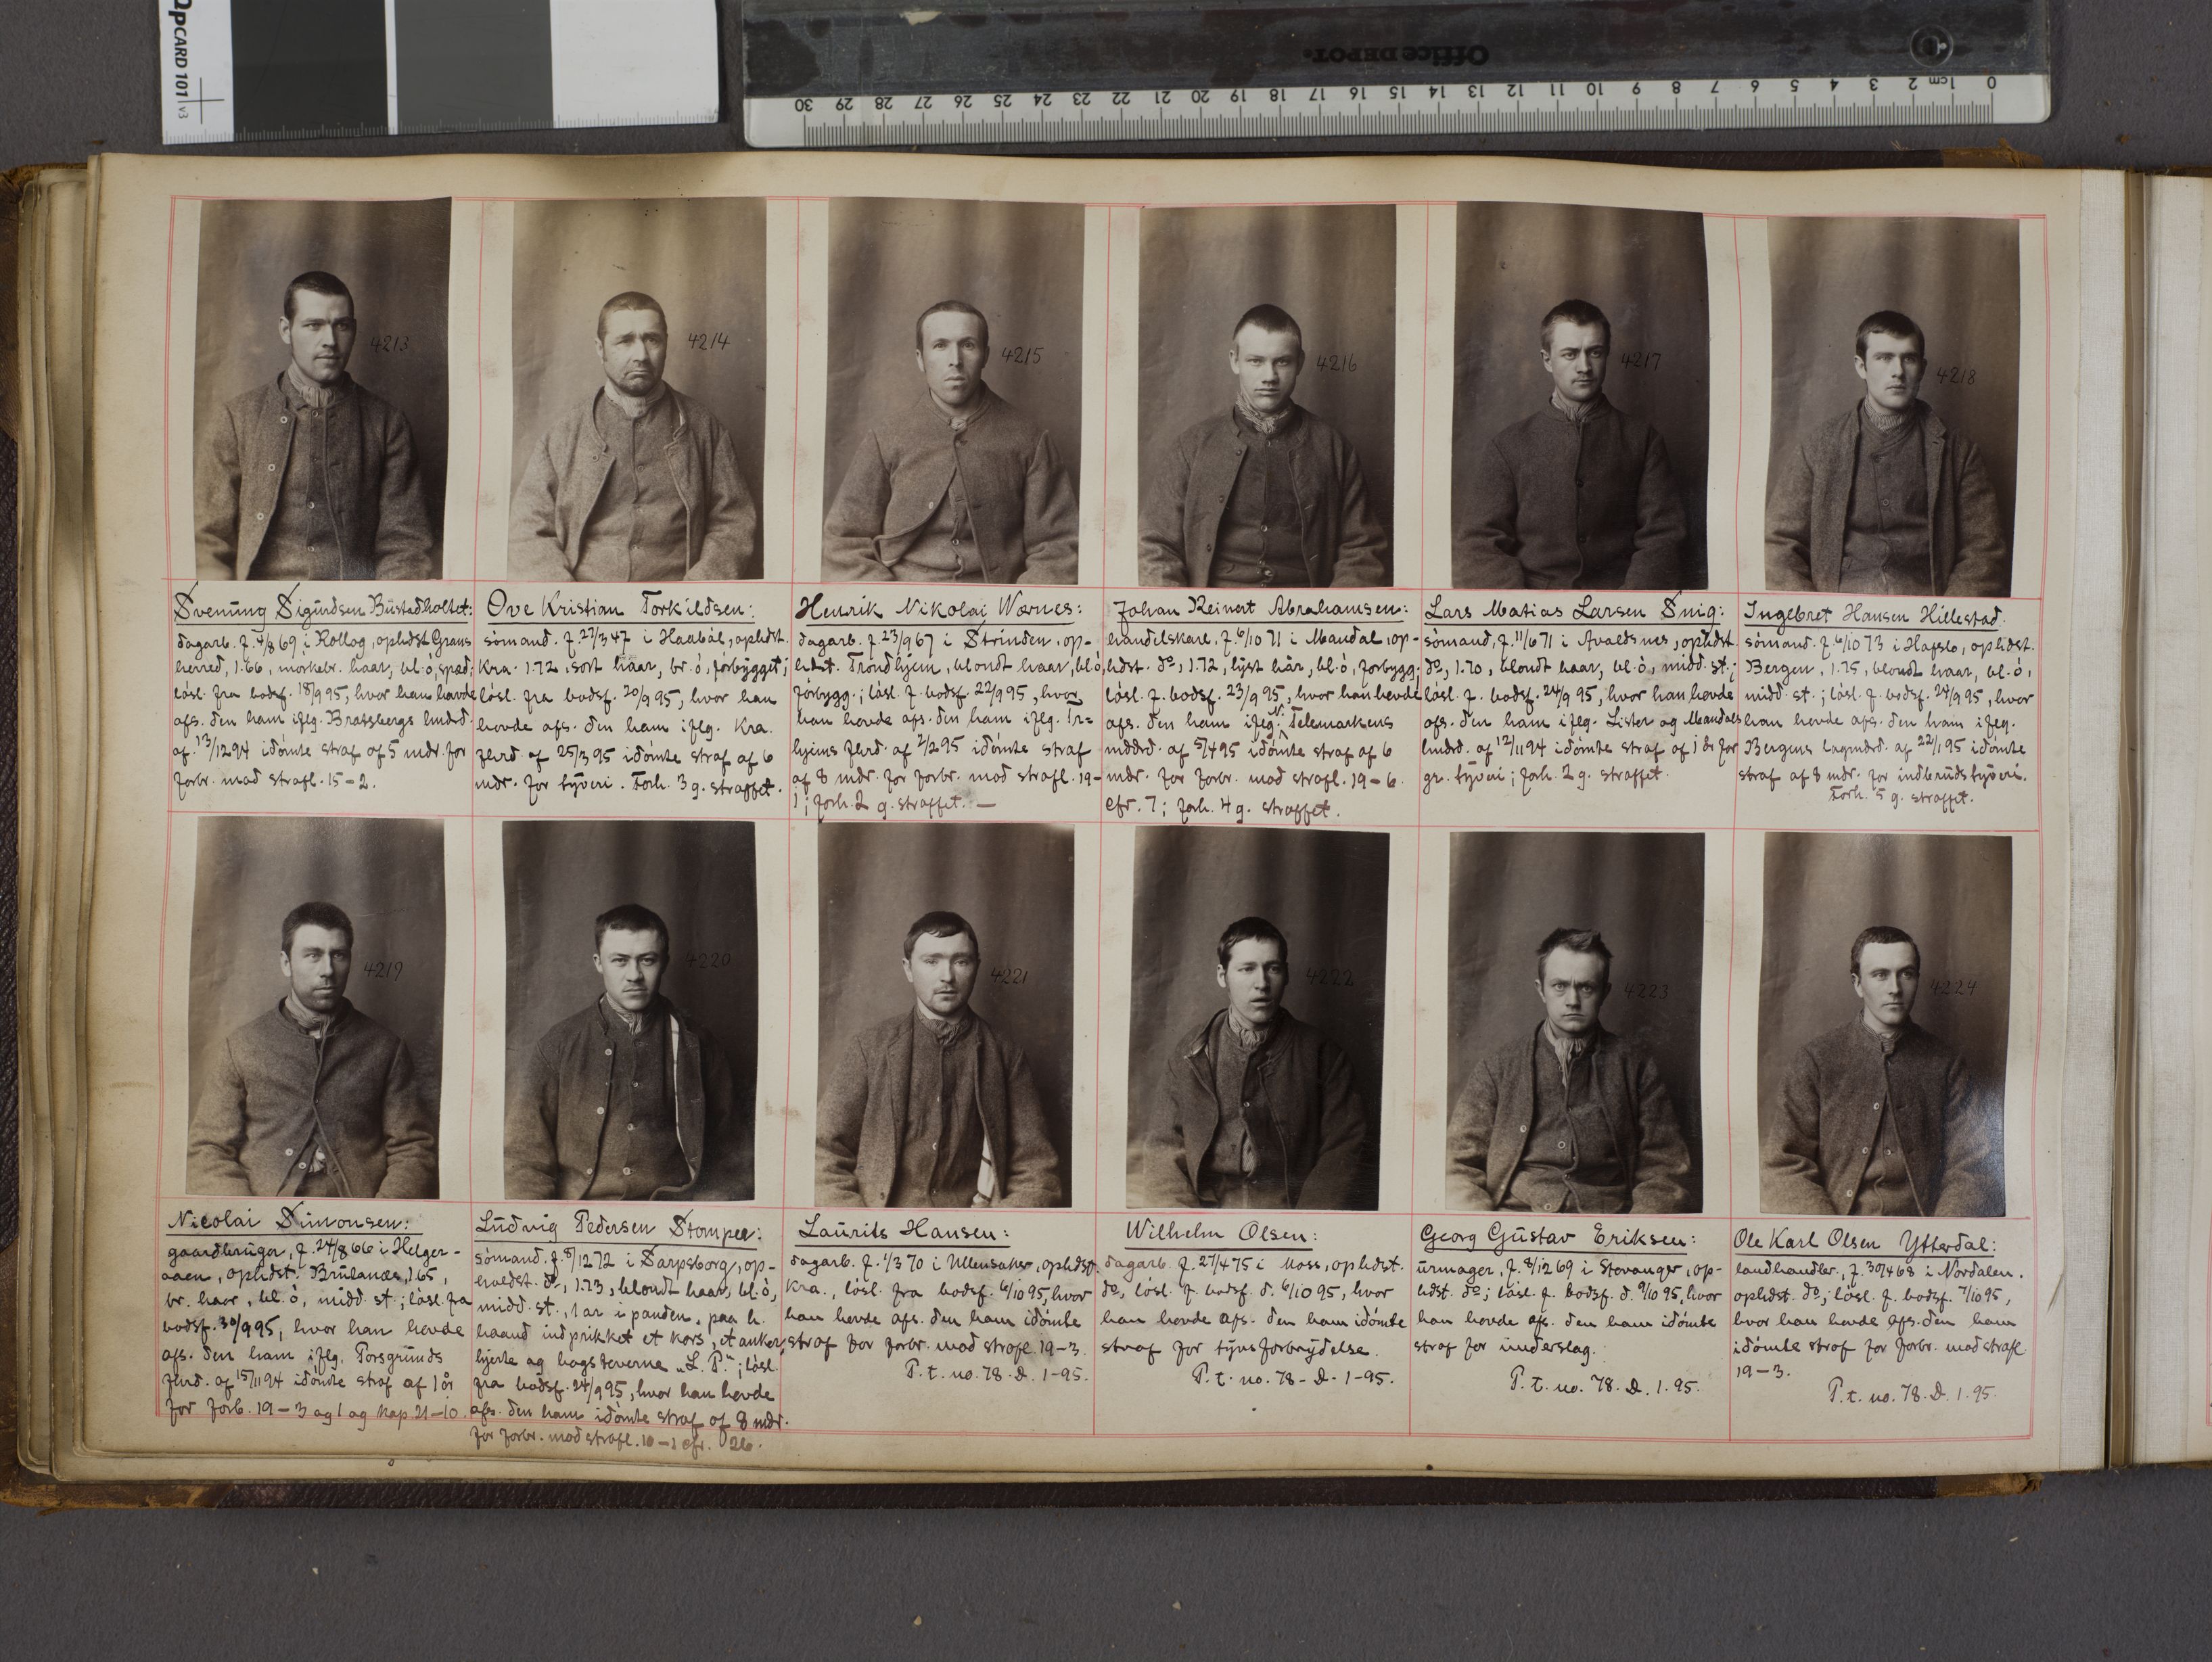 OpCARD 101 v3
Office DEPOT.
0 1cm 2 3 4 5 6 7 8 9 10 11 12 13 14 15 16 17 18 19 20 21 22 23 24 25 26 27 28 29 30
4213
4214
4215
4216
4217
4218
Svenung Sigurdsen Bustadholtet:
dagarb. f. 4/8 69 i Rollag, opholdst. Grans
herred, 1.66, mørkebr. haar, bl. ö, spæd;
løsl. fra bodsf. 18/9 95, hvor han havde
afs. den ham iflg. Bratsbergs lmdrd.
af 13/12 94 idömte straf af 5 mdr. for
forbr. mod strafl. 15-2.
Ove Kristian Torkildsen:
sömand. f. 27/3 47 i Haaböl, opholdst.
Kra. 1.72, sort haar, br. ö, förbygget;
lösl. fra bodsf. 20/9 95, hvor han
hevde afs. den ham iflg. Kra.
af 25/3 95 idömte straf af 6
mdr. for tyveri. Forh. 3 g. straffet.
Henrik Nikolai Wærnes:
dagarb. f. 23/9 67 i Strinden, op-
Trondhjem, blondt haar, bl. ö,
förbygg.; lösl. f. bodsf. 22/9 95, hvor
han hevde afs. den ham iflg. Tr=
hjems af 2/2 95 idömte straf
af 8 mdr. for forbr. mod strafl. 19-
1; forh. 2 g. straffet. —
Johan Reinert Abrahamsen:
handelskarl, f. 6/10 71 i Mandal, op-
do, 1.72, lyst hår, bl. ö, forbygg;
lösl. f. bodsf. 23/9 95, hvor han hevde
afs. den ham iflg. N. Telemarkens
af 5/4 95 idömte straf af 6
mdr. for forbr. mod strafl. 19-6
cfr. 7; forh. 4 g. straffet.
Lars Matias Larsen Snig:
sömand, f. 11/6 71 i Avaldsnes, opholdst.
do, 1.70, blondt haar, bl. ö, midd. st.;
lösl. f. bodsf. 24/9 95, hvor han hevde
afs. den ham iflg. Lister og Mandals
lmdrd. af 12/11 94 idömte straf af 1 år for
gr. tyveri; forh. 2 g. straffet.
Ingebret Hansen Hillestad.
sömand. f. 6/10 73 i Hafslo, opholdst.
Bergen, 1.75, blondt haar, bl. ö,
midd. st.; lösl. f. bodsf. 24/9 95, hvor
han hevde afs. den ham iflg.
Bergens lagmdrd. af 22/1 95 idömte
straf af 8 mdr. for indbrudstyveri.
Forh. 5 g. straffet.
4219
4220
4221
4222
4223
4224
Nicolai Simonsen:
gaardbruger, f. 24/8 66 i Helger-
aaen, opholdst. Brulanæs, 165,
br. haar, bl. ö, midd. st.; lösl. fra
bodsf. 30/9 95, hvor han hevde
afs. den ham iflg. Porsgrunds
af 15/11 94 idömte straf af 1 år
for forb. 19-3 og 1 og Kap. 21-10.
Ludvig Pedersen Stomper:
sömand. f. 8/12 72 i Sarpsborg, op-
holdst. do, 1.73, blondt haar, bl. ö,
midd. st., 1 ar i panden. paa h.
haand indprikket et kors, et anker,
hjerte og bogstaverne "L. P."; lösl.
fra bodsf. 24/9 95, hvor han hevde
afs. den ham idömte straf af 8 mdr.
for forbr. mod strafl. 10-1 cfr. 26.
Laurits Hansen:
dagarb. f. 1/3 70 i Ullensaker, opholdst.
Kra., lösl. fra bodsf. 6/10 95, hvor
han hevde afs. den ham idömte
straf for forbr. mod strafl. 19-3.
P. t. no. 78. D. 1-95.
Wilhelm Olsen:
dagarb. f. 27/4 75 i Moss, opholdst.
do, lösl. f. bodsf. d. 6/10 95, hvor
han hevde afs. den ham idömte
straf for tyvsforbrydelse.
P. t. no. 78-D. 1-95.
Georg Gustav Eriksen:
urmager, f. 8/12 69 i Stavanger, op-
hdst. do; lösl. f. bodsf. d. 9/10 95, hvor
han hevde afs. den ham idömte
straf for underslag.
P. t. no. 78. D. 1. 95.
Ole Karl Olsen Ytterdal:
landhandler, f. 30/4 68 i Nordalen.
opholdst. do; lösl. f. bodsf. 7/10 95,
hvor han hevde afs. den ham
idömte straf for forbr. mod strafl.
19-3.
P. t. no. 78. D. 1. 95.